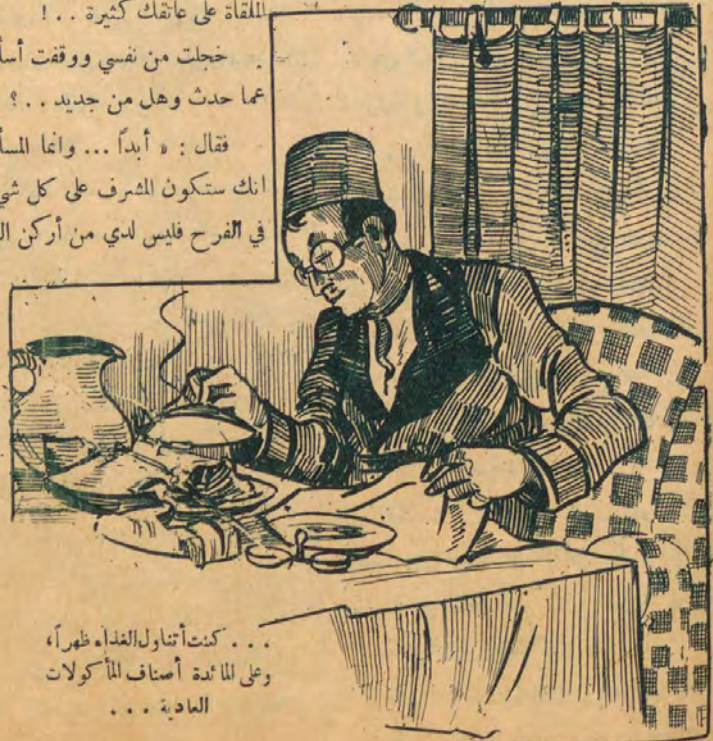 الملقاة على عاتقك كثيرة . . !
خجلت من نفسي ووقفت أسأ
عما حدث وهل من جديد . . ؟
فقال : « أبداً ... وانما المسأ
انك ستكون المشرف على كل شي
في الفرح فليس لدي من أركن ال
. . . كنت أتناول الغذاء ظهراً،
وعلى المائدة أصناف المأكولات
العادية . . .